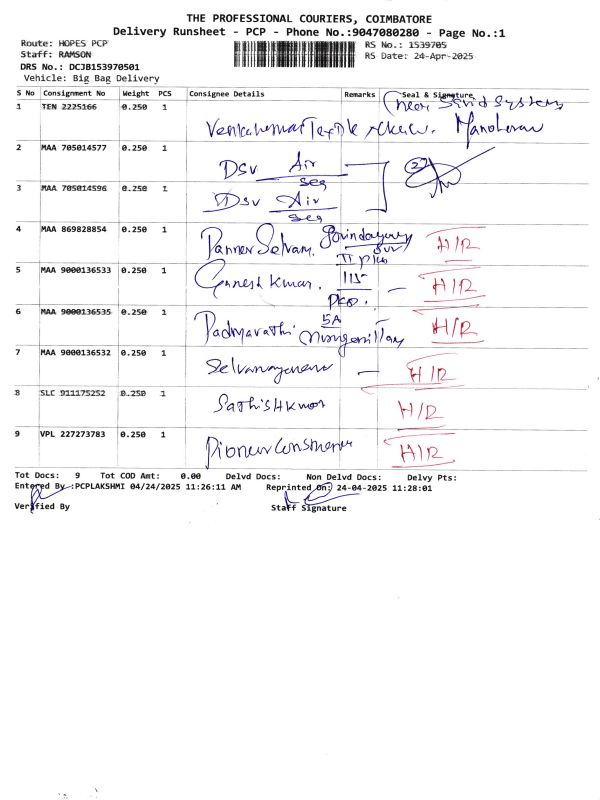 THE PROFESSIONAL COURIERS, COIMBATORE
Delivery Runsheet - PCP - Phone No.:9047080280 - Page No.:1
Route: HOPES PCP RS No.: 1539705
Staff: RAMSON RS Date: 24-Apr-2025
DRS No.: DCJB153970501
Vehicle: Big Bag Delivery
S No Consignment No Weight PCS Consignee Details Remarks Seal & Signature
1 TEN 2225166 0.250 1
2 MAA 705014577 0.250 1 Dsv Air
3 MAA 705014596 0.250 1 Dsv Air
4 MAA 869828854 0.250 1 Panner Selvam. H/R
5 MAA 9000136533 0.250 1 Gnnesh Kumar. 115 H/R
6 MAA 9000136535 0.250 1 Padmavathi 5A H/R
7 MAA 9000136532 0.250 1 H/R
8 SLC 911175252 0.250 1 H/R
9 VPL 227273783 0.250 1 H/R
Tot Docs: 9 Tot COD Amt: 0.00 Delvd Docs: Non Delvd Docs: Delvy Pts:
Entered By :PCPLAKSHMI 04/24/2025 11:26:11 AM Reprinted On: 24-04-2025 11:28:01
Verified By Staff Signature